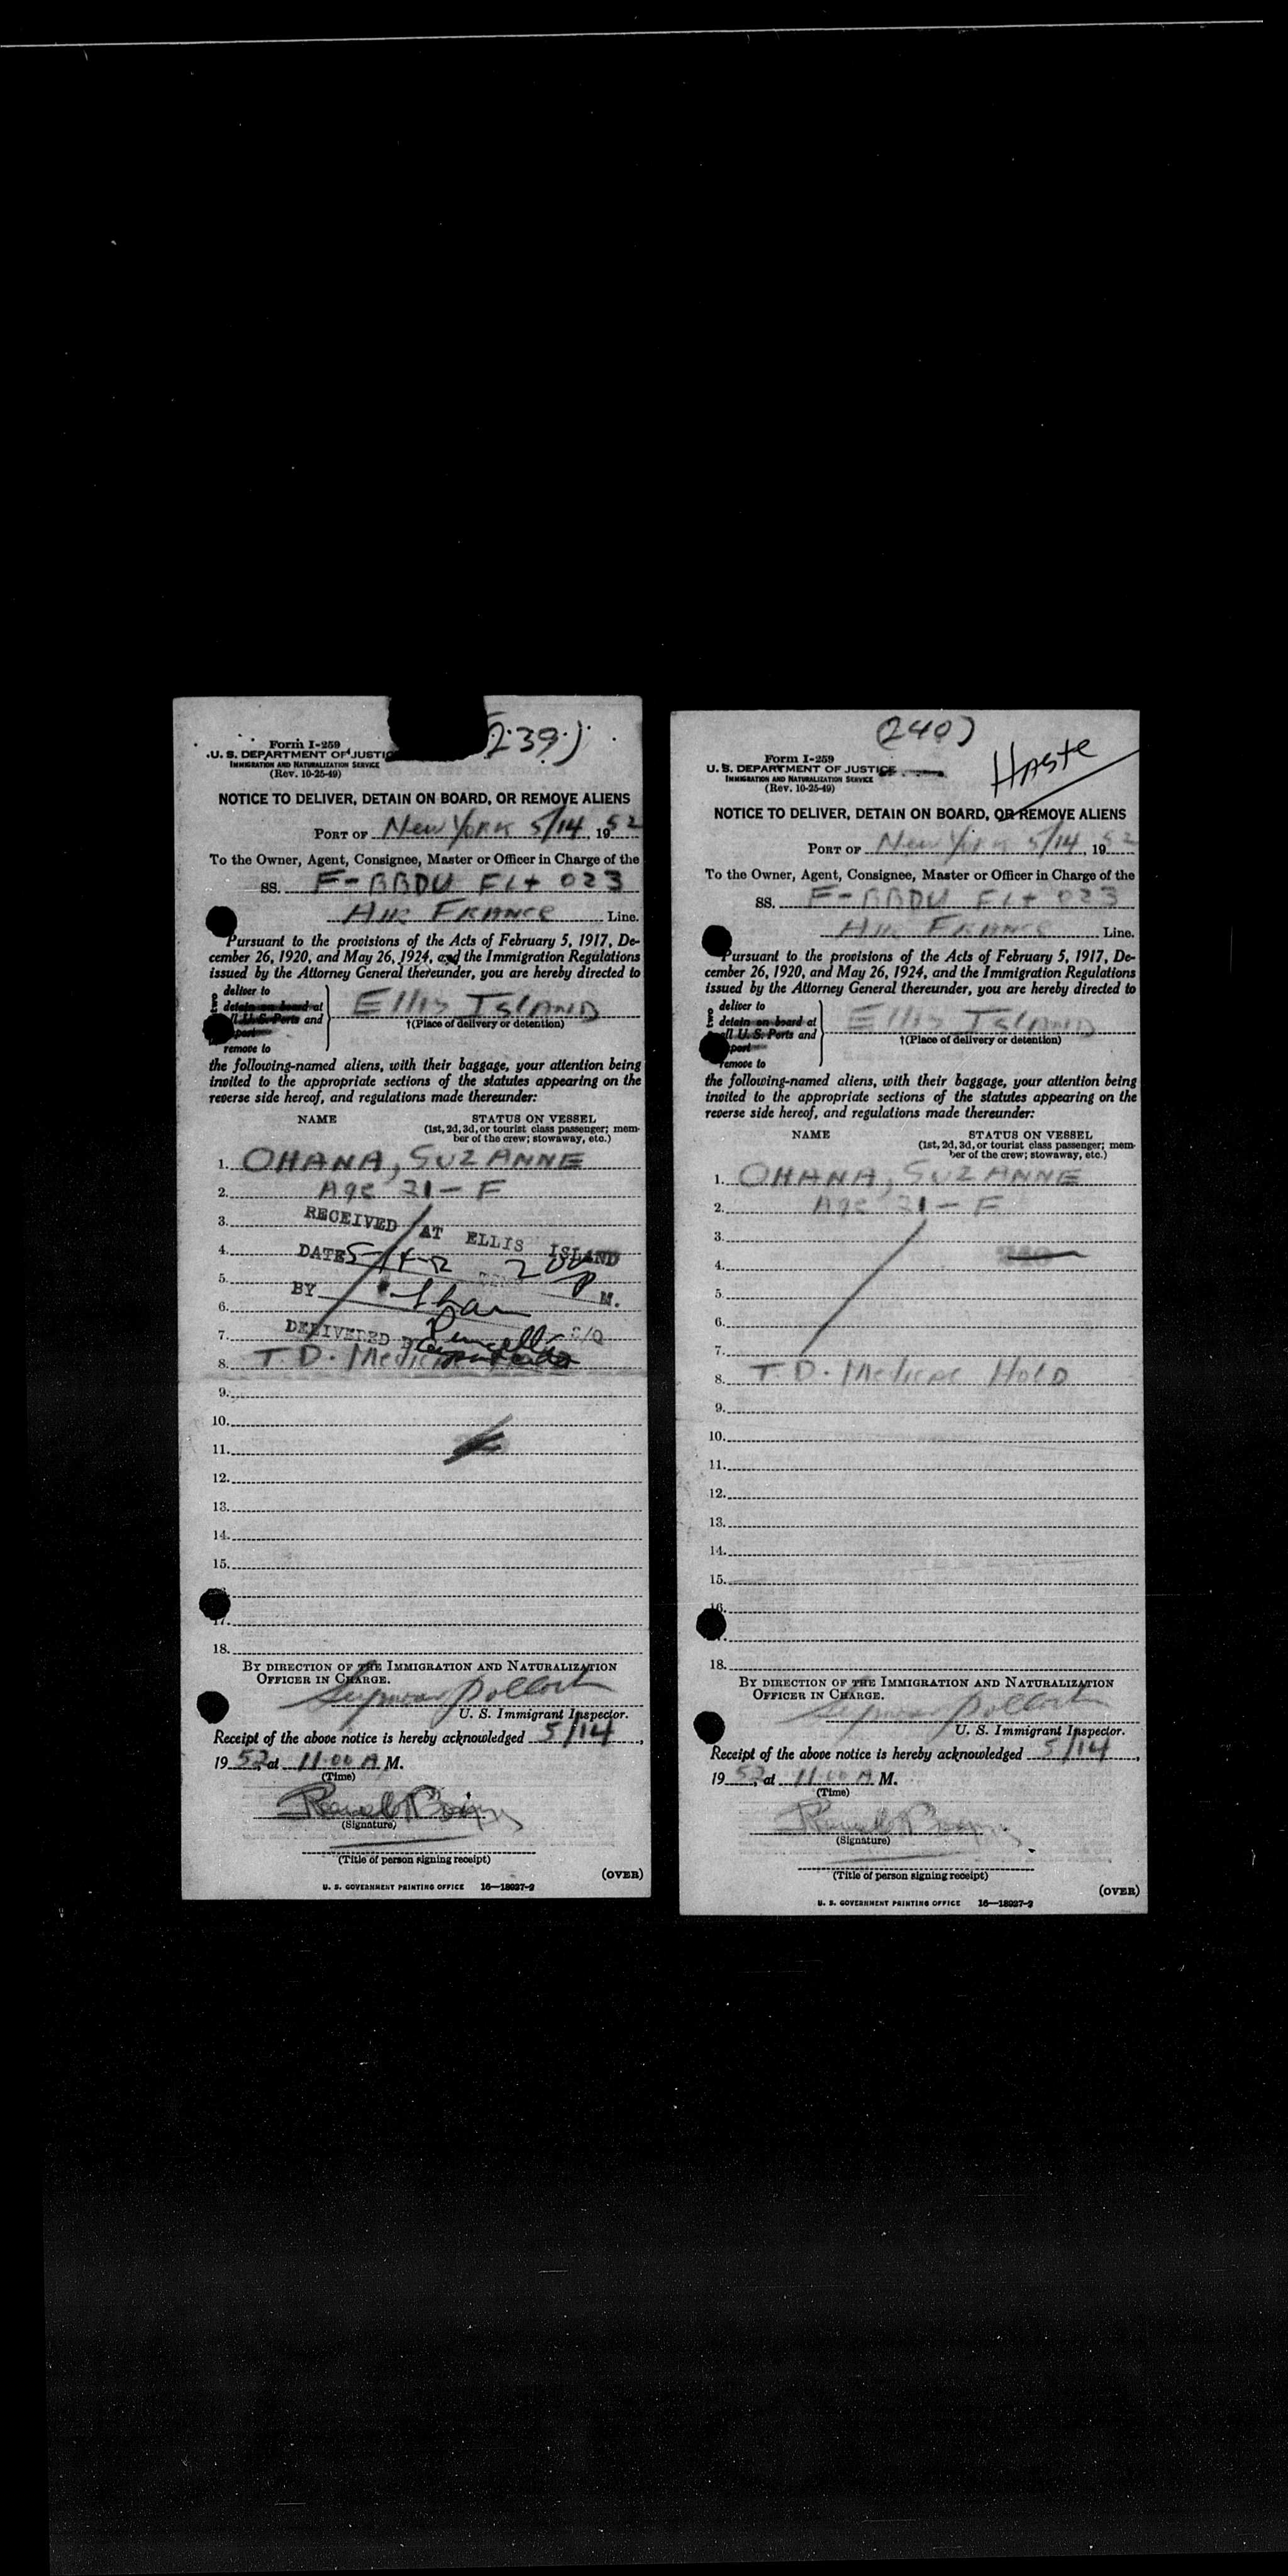 (239)
Form I-259
U. S. DEPARTMENT OF JUSTICE
IMMIGRATION AND NATURALIZATION SERVICE
(Rev. 10-25-49)
NOTICE TO DELIVER, DETAIN ON BOARD, OR REMOVE ALIENS
PORT OF New York 5/14, 1952
To the Owner, Agent, Consignee, Master or Officer in Charge of the
SS. F-BBDU FLt 023
AIR FRANCE Line.
Pursuant to the provisions of the Acts of February 5, 1917, De-
cember 26, 1920, and May 26, 1924, and the Immigration Regulations
issued by the Attorney General thereunder, you are hereby directed to
deliver to
detain on board at
U. S. Ports and
remove to
Ellis Island
†(Place of delivery or detention)
the following-named aliens, with their baggage, your attention being
invited to the appropriate sections of the statutes appearing on the
reverse side hereof, and regulations made thereunder:
NAME STATUS ON VESSEL
(1st, 2d, 3d, or tourist class passenger; mem-
ber of the crew; stowaway, etc.)
1. OHANA, SUZANNE
2. Age 21 - F
3. RECEIVED AT ELLIS ISLAND
4. DATE
5. BY M.
6.
7. DELIVERED
8. T. D. Medical
9.
10.
11.
12.
13.
14.
15.
17.
18.
BY DIRECTION OF THE IMMIGRATION AND NATURALIZATION
OFFICER IN CHARGE.
Seymour Pollock
U. S. Immigrant Inspector.
Receipt of the above notice is hereby acknowledged 5/14,
1952, at 11:00 A M.
(Time)
(Signature)
(Title of person signing receipt)
(OVER)
U. S. GOVERNMENT PRINTING OFFICE 16—18927-2
(240)
Haste
Form I-259
U. S. DEPARTMENT OF JUSTICE
IMMIGRATION AND NATURALIZATION SERVICE
(Rev. 10-25-49)
NOTICE TO DELIVER, DETAIN ON BOARD, OR REMOVE ALIENS
PORT OF New York 5/14, 1952
To the Owner, Agent, Consignee, Master or Officer in Charge of the
SS. F-BBDU FLt 023
AIR FRANCE Line.
Pursuant to the provisions of the Acts of February 5, 1917, De-
cember 26, 1920, and May 26, 1924, and the Immigration Regulations
issued by the Attorney General thereunder, you are hereby directed to
deliver to
detain on board at
U. S. Ports and
remove to
Ellis Island
†(Place of delivery or detention)
the following-named aliens, with their baggage, your attention being
invited to the appropriate sections of the statutes appearing on the
reverse side hereof, and regulations made thereunder:
NAME STATUS ON VESSEL
(1st, 2d, 3d, or tourist class passenger; mem-
ber of the crew; stowaway, etc.)
1. OHANA, SUZANNE
2. Age 21 - F
3.
4.
5.
6.
7.
8. T. D. Medical Hold
9.
10.
11.
12.
13.
14.
15.
16.
18.
BY DIRECTION OF THE IMMIGRATION AND NATURALIZATION
OFFICER IN CHARGE.
Seymour Pollock
U. S. Immigrant Inspector.
Receipt of the above notice is hereby acknowledged 5/14,
1952, at 11:00 A M.
(Time)
(Signature)
(Title of person signing receipt)
(OVER)
U. S. GOVERNMENT PRINTING OFFICE 16—18927-2